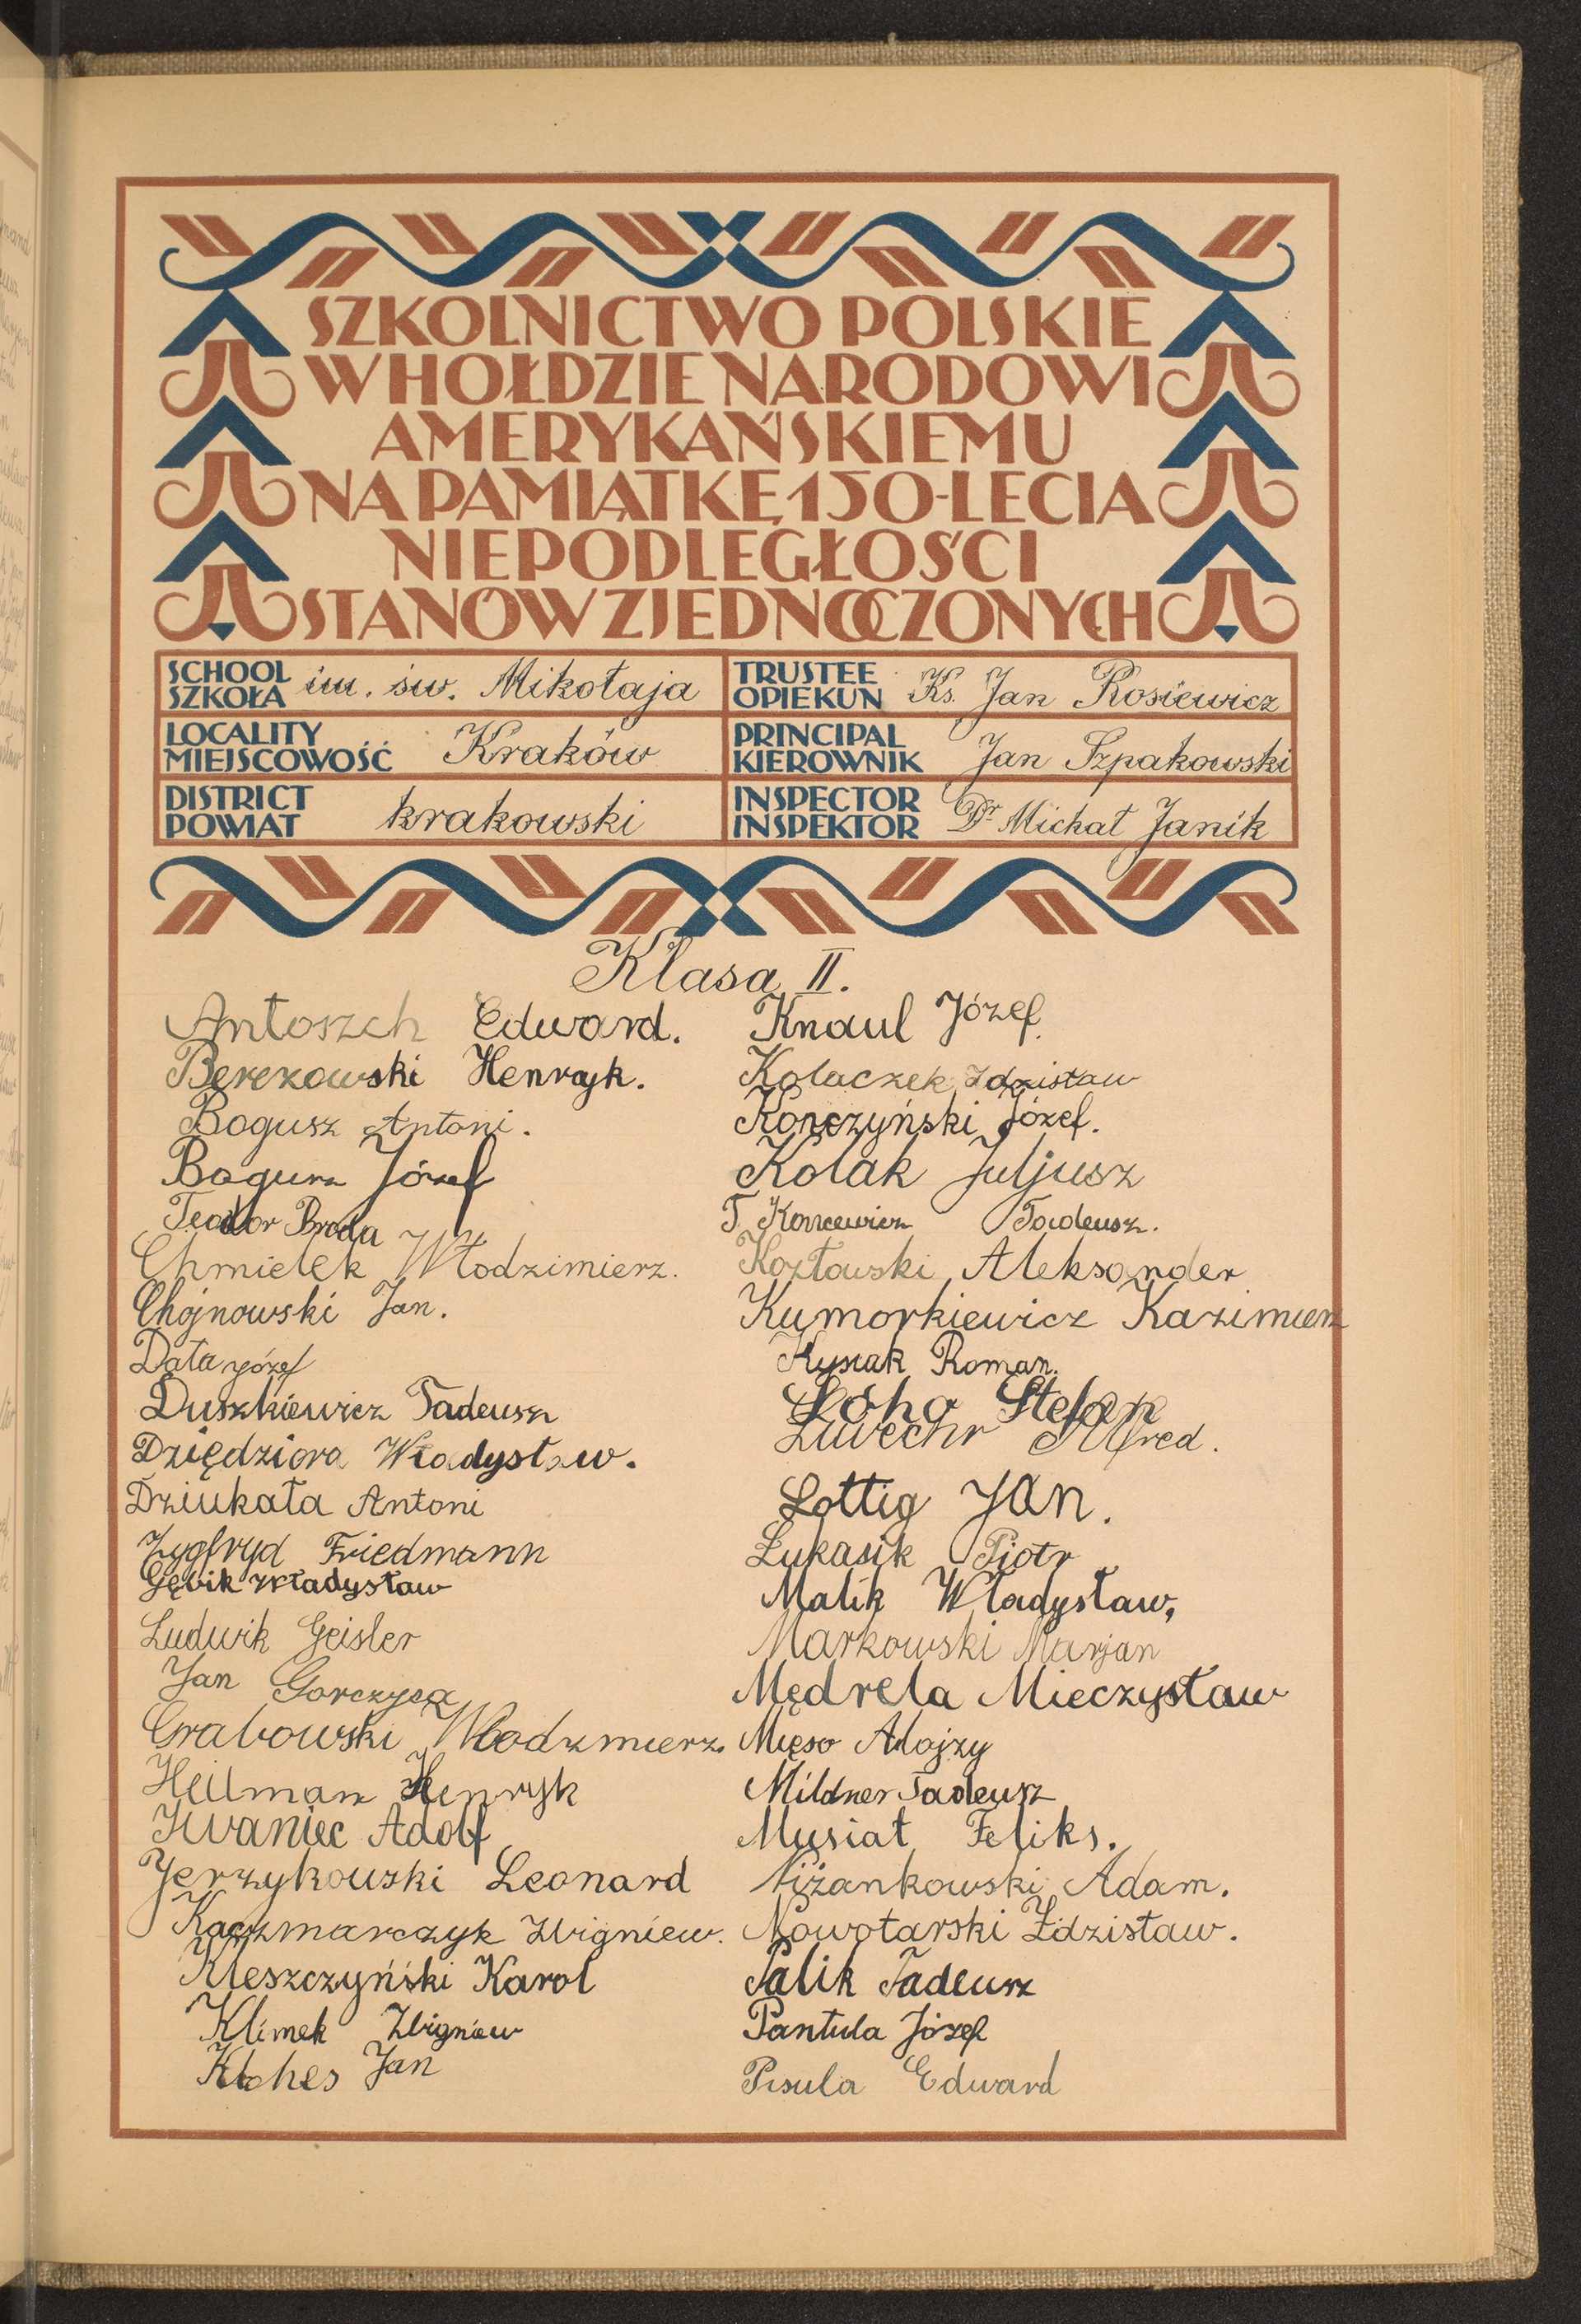 SZKOLNICTWO POLSKIE
W HOŁDZIE NARODOWI
AMERYKAŃSKIEMU
NA PAMIĄTKĘ 150-LECIA
NIEPODLEGŁOŚCI
STANÓW ZJEDNOCZONYCH
SCHOOL
SZKOŁA im. św. Mikołaja
TRUSTEE
OPIEKUN Ks. Jan Rosiewicz
LOCALITY
MIEJSCOWOŚĆ Kraków
PRINCIPAL
KIEROWNIK Jan Szpakowski
DISTRICT
POWIAT krakowski
INSPECTOR
INSPEKTOR Dr Michał Janik
Klasa II.
Antoszch Edward.
Berezowski Henryk.
Bogusz Antoni.
Bogusz Józef
Teodor Broda
Chmielek Włodzimierz.
Chojnowski Jan.
Data Józef
Duszkiewicz Tadeusz
Dziędziora Władysław.
Dziukała Antoni
Zygfryd Friedmann
Gębik Władysław
Ludwik Geisler
Jan Gorczyca
Grabowski Włodzmierz.
Heilman Henryk
Iwaniec Adolf
Jerzykowski Leonard
Kaczmarczyk Zbigniew.
Kleszczyński Karol
Klimek Zbigniew
Jan
Knaul Józef.
Kolaczek Zdzisław
Konczyński Józef.
Kolak Juljusz
T. Koncewicz Tadeusz.
Kozłowski Aleksander
Kumorkiewicz Kazimierz
Kysiak Roman.
Stefan
Alfred.
Lottig JAn.
Łukasik Piotr
Malik Władysław,
Markowski Marjan
Mędrela Mieczysław
Mięso Alojzy
Mildner Tadeusz
Musiał Feliks.
Niżankowski Adam.
Nowotarski Zdzisław.
Palik Tadeusz
Pantula Józef
Pisula Edward